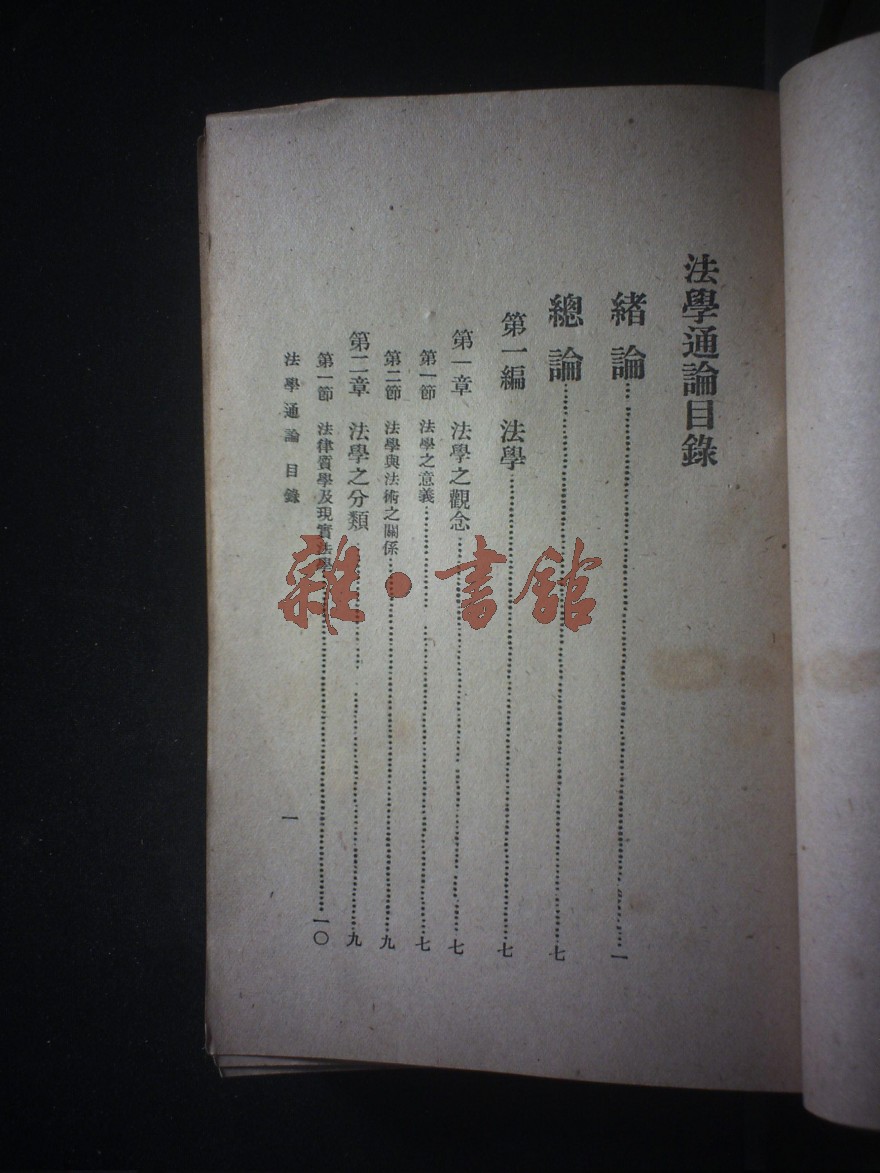 法學通論目錄
緒論…………一
總論…………七
第一編 法學…………七
第一章 法學之觀念…………七
第一節 法學之意義…………七
第二節 法學與法術之關係…………九
第二章 法學之分類…………九
第一節 法律質學及現實法學…………一〇
法學通論 目錄 一
雜·書館